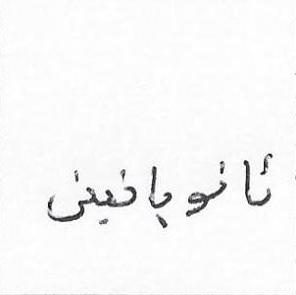 ئانوبانینی